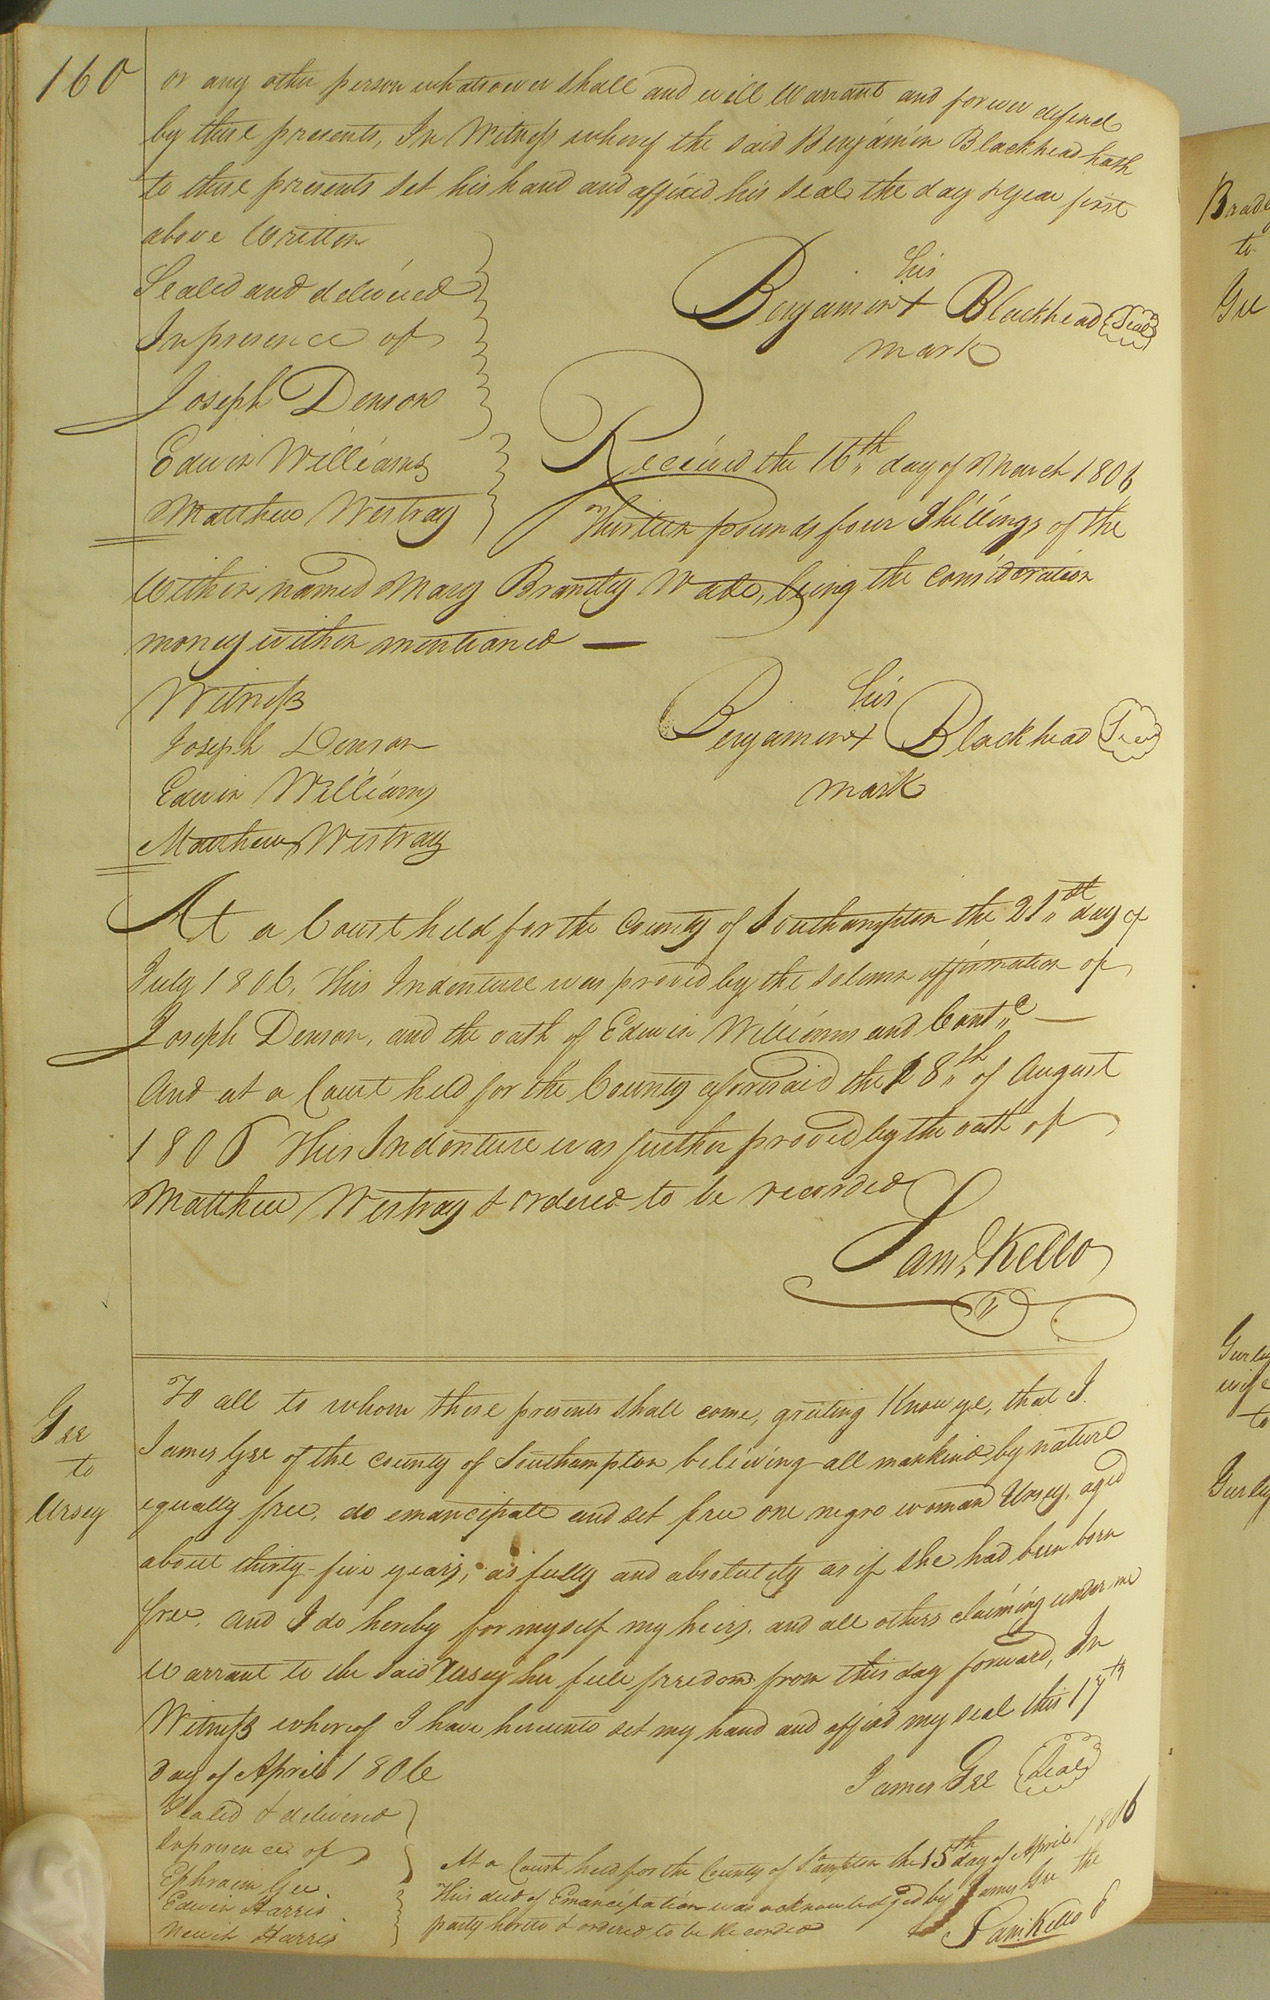 160
or any other person whatsoever shall and will Warrant and forever defend
by these presents, In Witness whereof the said Benjamin Blackhead hath
to these presents set his hand and affixed his seal the day & year first
above Written
Sealed and delivered
In presence of
Joseph Denson
Edwin Williams
Matthew Westray
his
Benjamin + Blackhead Seal
mark
Received the 16th day of March 1806
Thirteen pounds four Shillings of the
within named Mary Brantley Wade, being the consideration
money within mentioned —
Witness
Joseph Denson
Edwin Williams
Matthew Westray
his
Benjamin + Blackhead Seal
mark
At a Court held for the County of Southampton the 21st day of
July 1806, This Indenture was proved by the solemn affirmation of
Joseph Denson, and the oath of Edwin Williams and Cont.d —
And at a Court held for the County aforesaid the 18th of August
1806 This Indenture was further proved by the oath of
Matthew Westray & ordered to be recorded
Saml Kello
Gee
to
Ursey
To all to whom these presents shall come, greeting Know ye, that I
James Gee of the county of Southampton believing all mankind by nature
equally free, do emancipate and set free one negro woman Ursey, aged
about thirty-five years, as fully and absolutely as if she had been born
free. And I do hereby for myself my heirs, and all others claiming under me
warrant to the said Ursey her full freedom from this day forward, In
Witness whereof I have hereunto set my hand and affixed my seal this 17th
day of April 1806
James Gee Seal
Sealed & delivered
In presence of
Ephraim Gee
Edwin Harris
Newit Harris
At a Court held for the County of S.ampton the 15th day of April 1806
This deed of Emancipation was acknowledged by James Gee the
party hereto & ordered to be Recorded
Sam. Kello C
Brad
to
Gee
Gurley
wife
to
Gurley